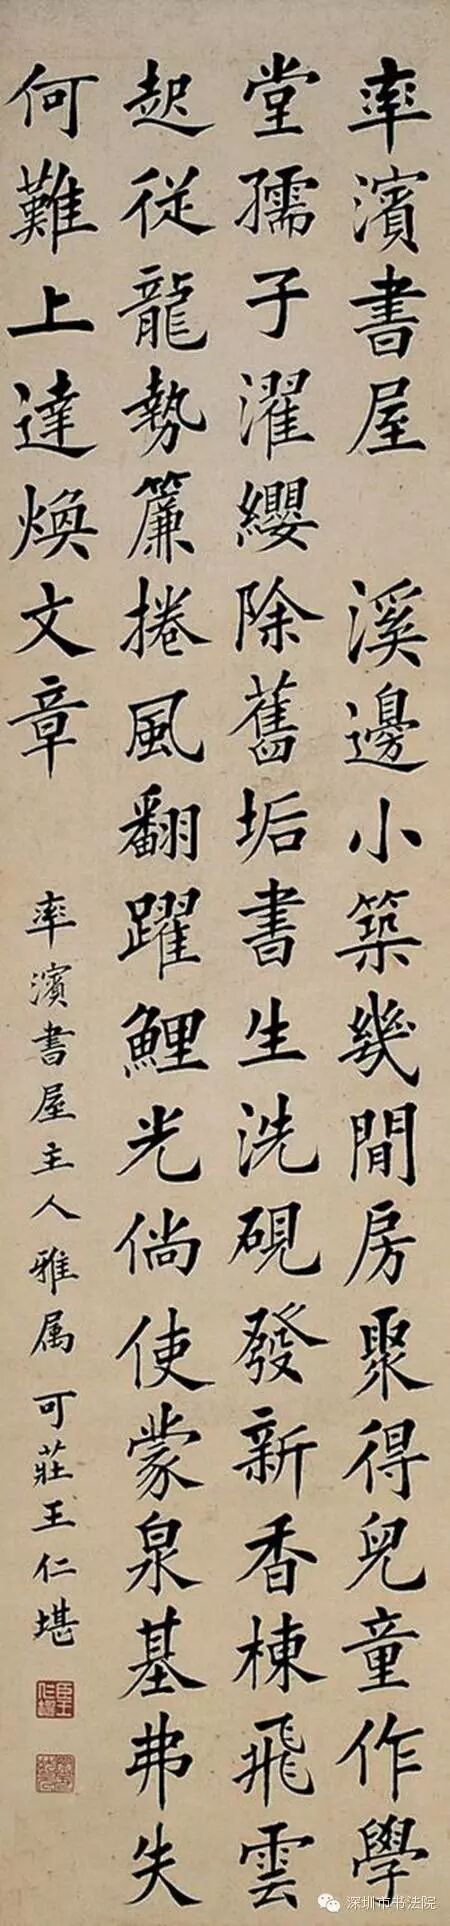 率濱書屋 溪邊小築幾間房聚得兒童作學
堂孺子濯纓除舊垢書生洗硯發新香棟飛雲
起從龍勢簾捲風翻躍鯉光倘使蒙泉基弗失
何難上達煥文章 率濱書屋主人雅属 可莊王仁堪
深圳市书法院